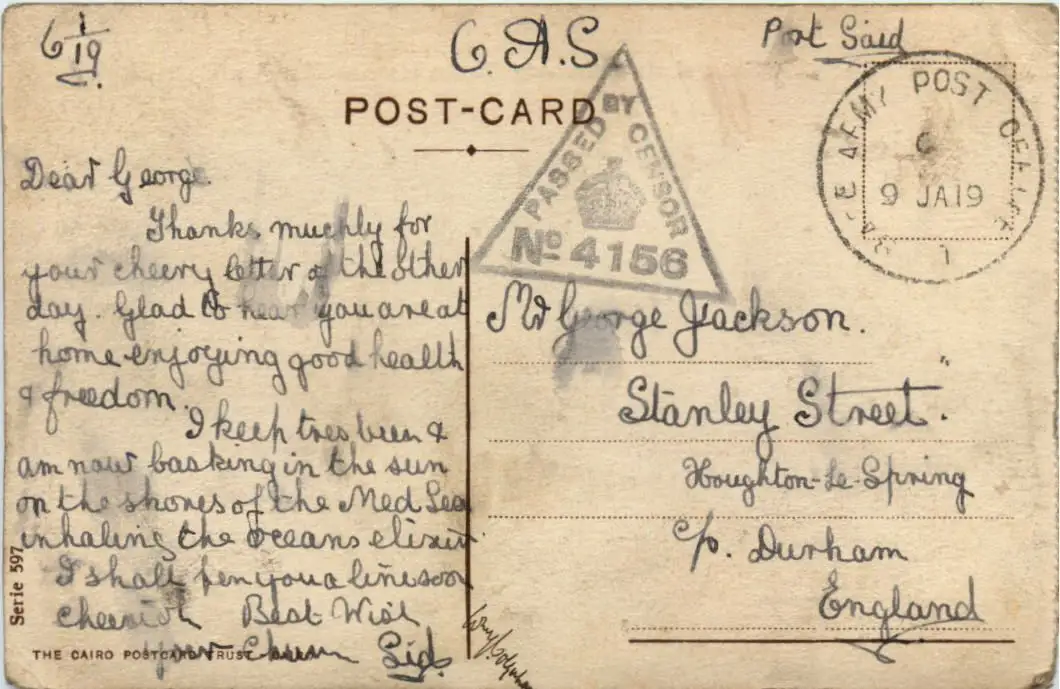 6/1/19
C.A.S
Port Said
POST-CARD
PASSED BY CENSOR
No 4156
BASE ARMY POST OFFICE
9 JA 19
1
Dear George.
Thanks muchly for
your cheery letter of the other
day. Glad to hear you are at
home enjoying good health
& freedom.
I keep tres bien &
am now basking in the sun
on the shores of the Med Sea
inhaling the oceans elixir.
I shall pen you a line soon
cheerioh Best Wish
your Chum Sid.
Mr George Jackson.
Stanley Street.
Houghton-Le-Spring
C/o. Durham
England
Serie 597
THE CAIRO POSTCARD TRUST